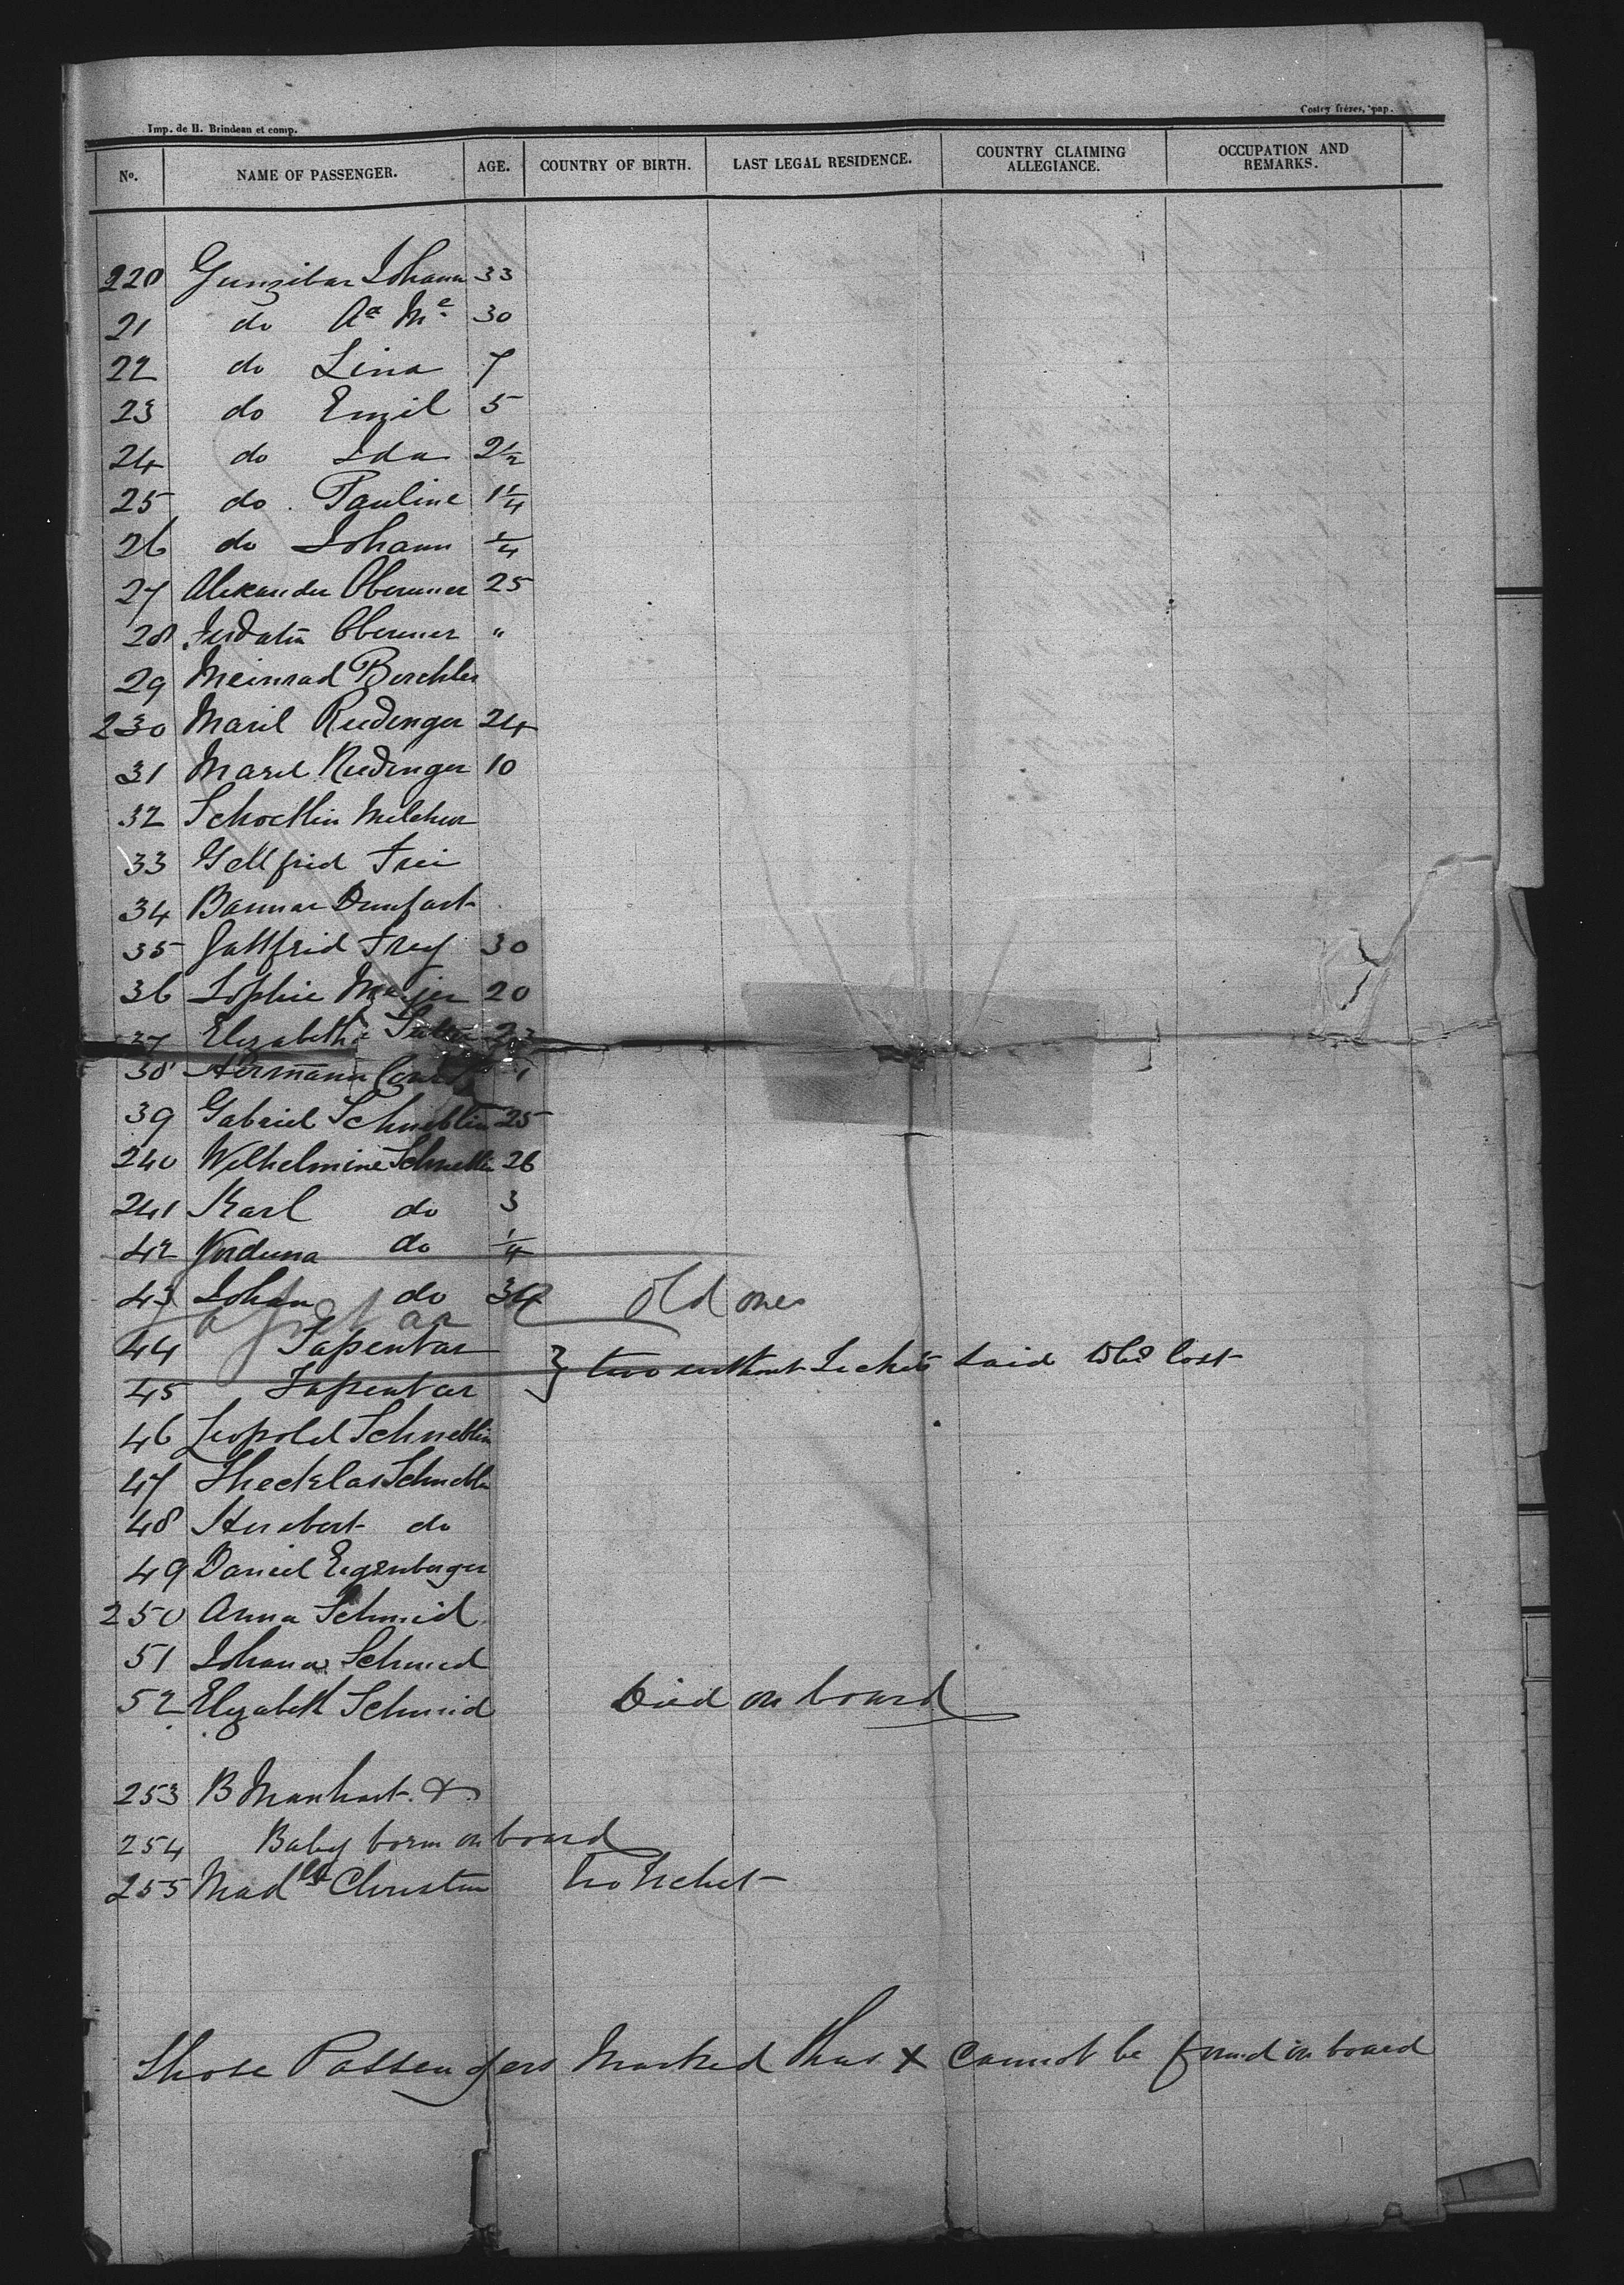 Imp. de H. Brindeau et comp.
Costey frères, pap.
No. NAME OF PASSENGER. AGE. COUNTRY OF BIRTH. LAST LEGAL RESIDENCE. COUNTRY CLAIMING ALLEGIANCE. OCCUPATION AND REMARKS.
220 Gunzibar Johann 33
21 do Aa Me 30
22 do Lina 7
23 do Emil 5
24 do Ida 2½
25 do Pauline 1¼
26 do Johann ¼
27 Alexander Oberumer 25
28 Oberumer "
29 Meinrad Berchler
230 Maril Reedenger 24
31 Maril Reedenger 10
32 Schocklin Melcher
33 Gottfrid Frei
34 Dumfart
35 Gottfrid Frey 30
36 Sophie Meyer 20
37 Elizabeth 23
38 Hermann
39 Gabriel Schneblin 25
240 Wilhelmine Schneblin 26
241 Karl do 3
42 do ¼
43 Johan do 34 old ones
44 Tapentar
45 Tapentar } two without Tickets said lost
46 Leopold Schneblin
47 Theckla Schneblin
48 do
49 Daniel Eigenberger
250 Anna Schmid
51 Johana Schmid
52 Elizabeth Schmid Died on board
253 B Manhart. X
254 Baby born on board
255 Madlle Christin No Ticket
Those Passengers Marked thus X Cannot be found on board